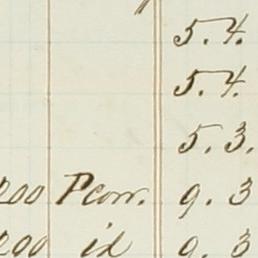 5. 4.
5. 4.
5. 3.
200 Pcorr. 9. 3
200 id 9. 3